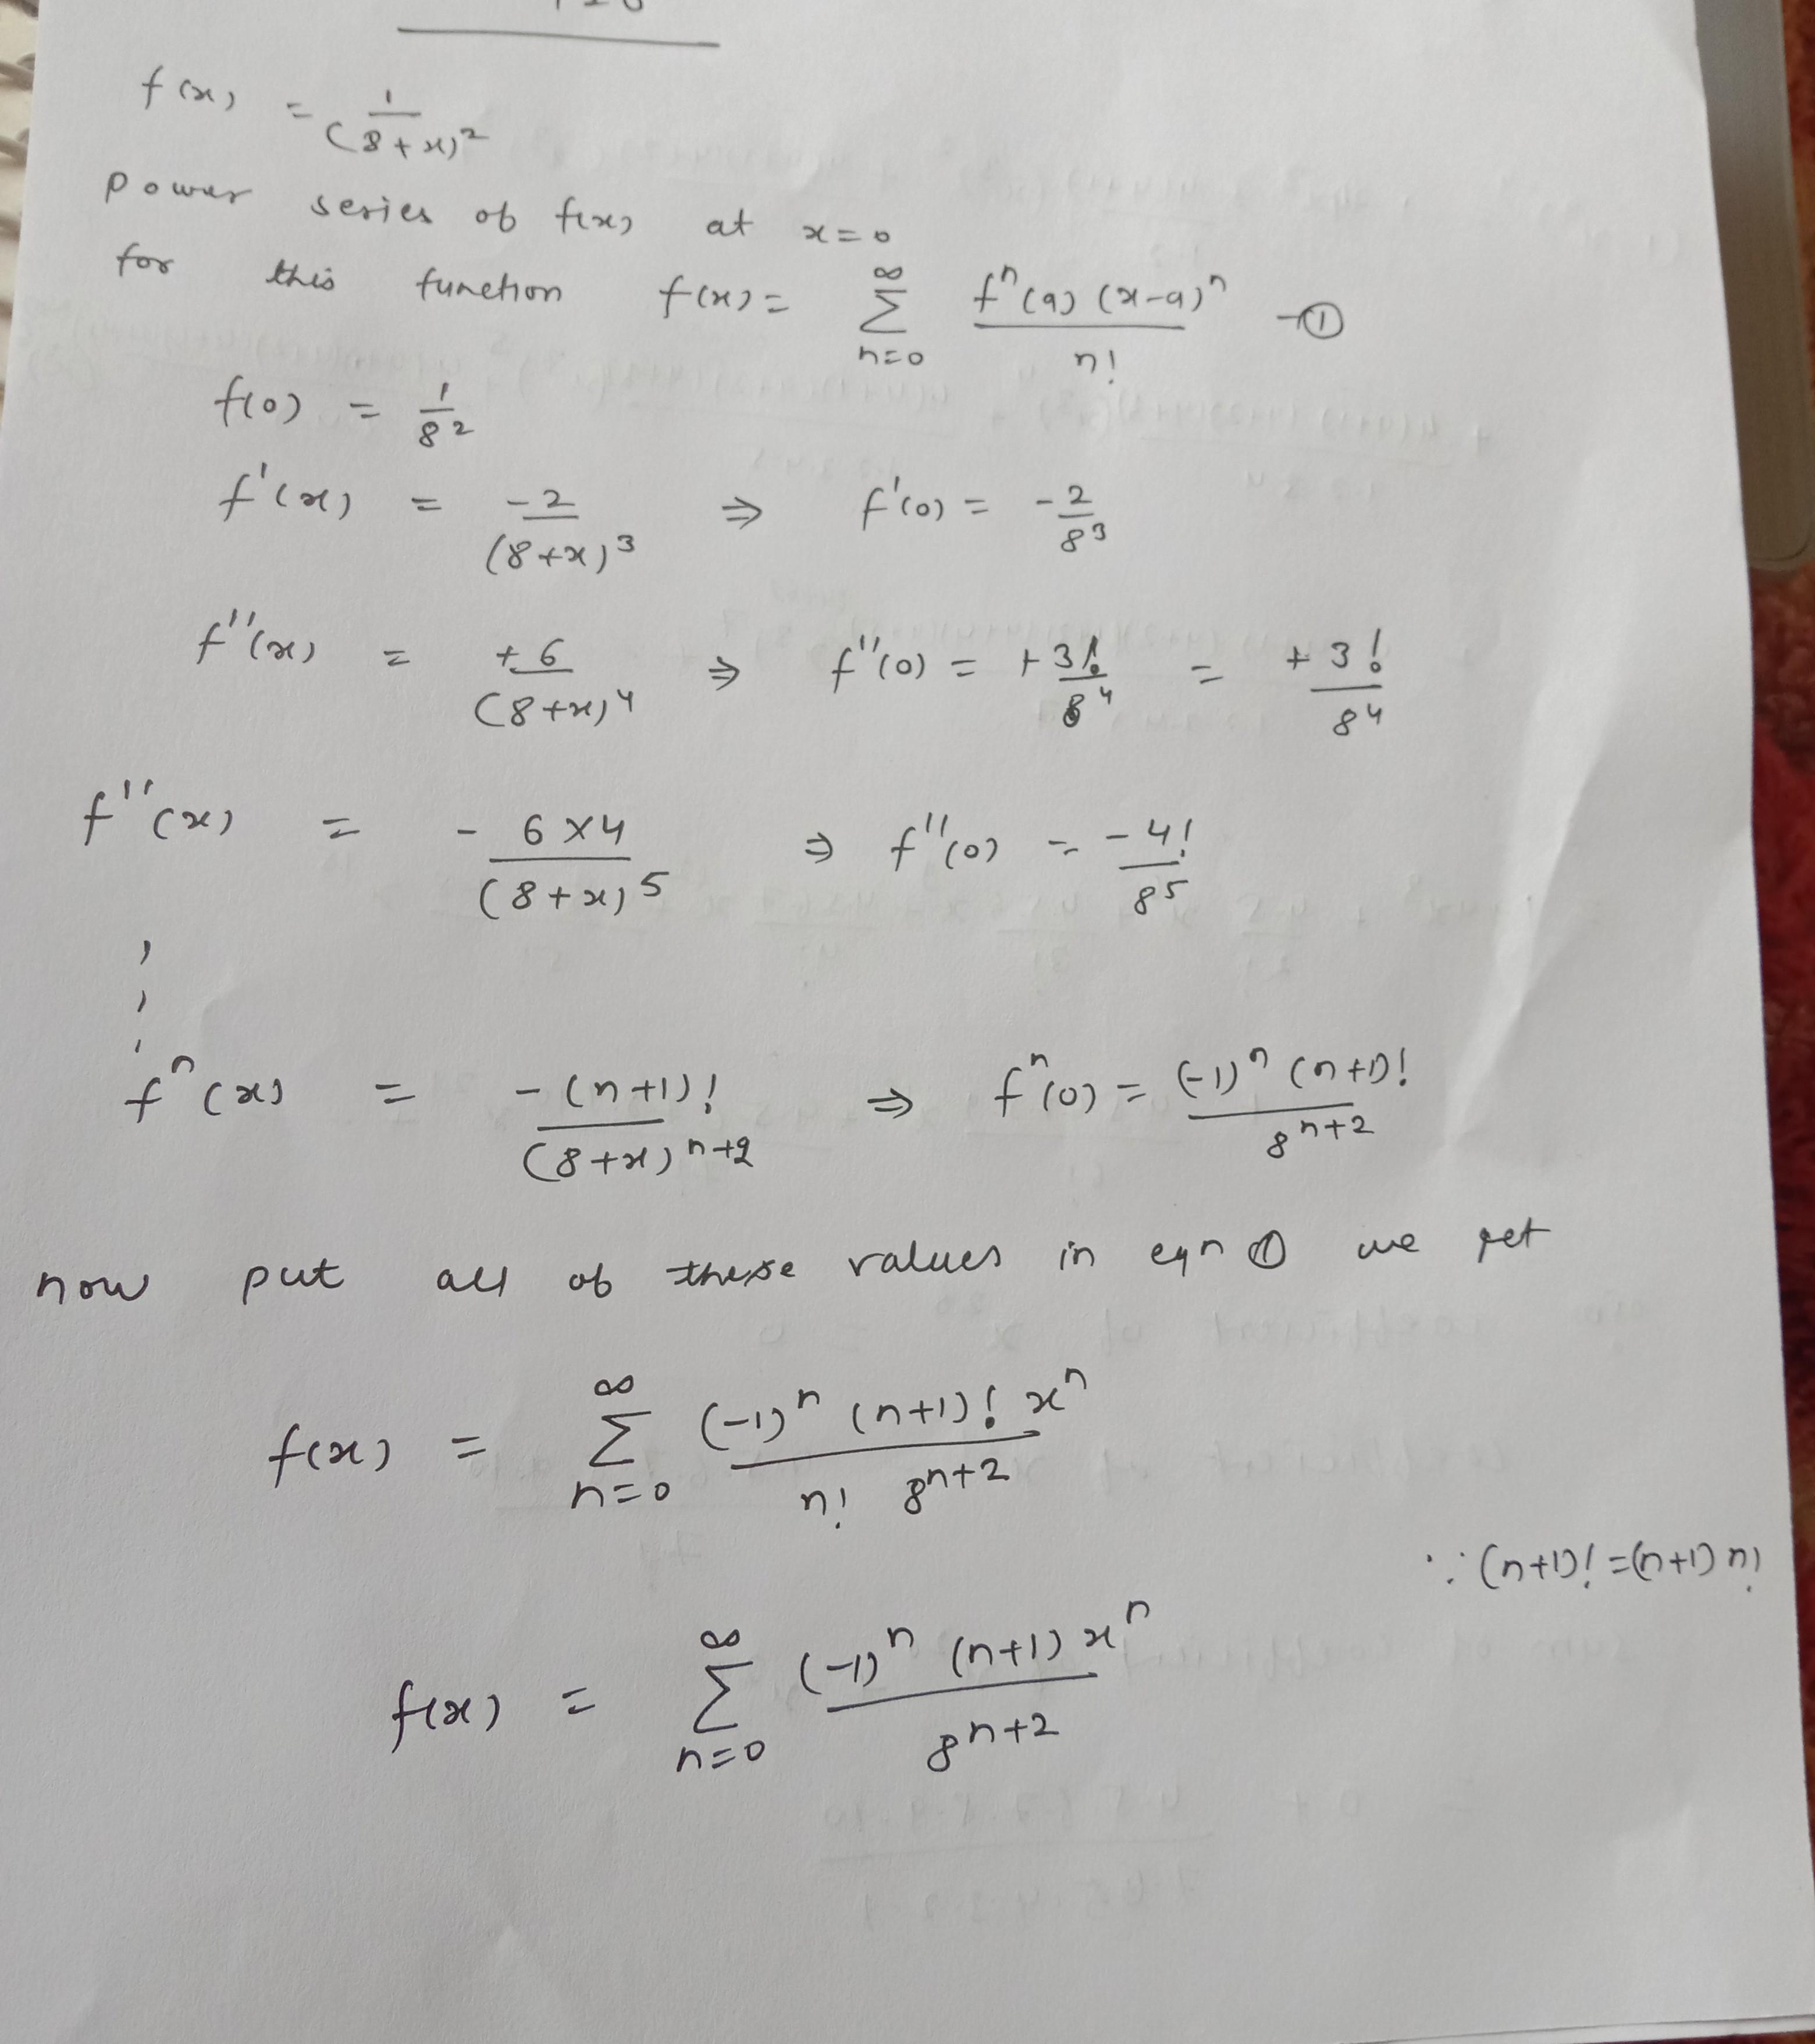 f(x) = 1/(8+x)²
power series of f(x) at x=0
for this function f(x) = ∞Σn=0 fⁿ(a) (x-a)ⁿ/n! -①
f(0) = 1/8²
f'(x) = -2/(8+x)³ ⇒ f'(0) = -2/8³
f''(x) = +6/(8+x)⁴ ⇒ f''(0) = +3!/8⁴ = +3!/8⁴
f'''(x) = - 6×4/(8+x)⁵ ⇒ f'''(0) = -4!/8⁵
fⁿ(x) = -(n+1)!/(8+x)ⁿ⁺² ⇒ fⁿ(0) = (-1)ⁿ (n+1)!/8ⁿ⁺²
now put all of these values in eqn ① we get
f(x) = ∞Σn=0 (-1)ⁿ (n+1)! xⁿ/n! 8ⁿ⁺²
∵ (n+1)! = (n+1) n!
f(x) = ∞Σn=0 (-1)ⁿ (n+1) xⁿ/8ⁿ⁺²